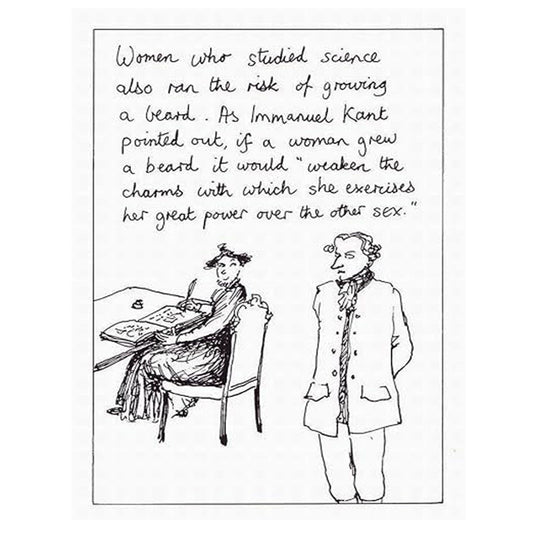 Women who studied science
also ran the risk of growing
a beard. As Immanuel Kant
pointed out, if a woman grew
a beard it would "weaken the
charms with which she exercises
her great power over the other sex."